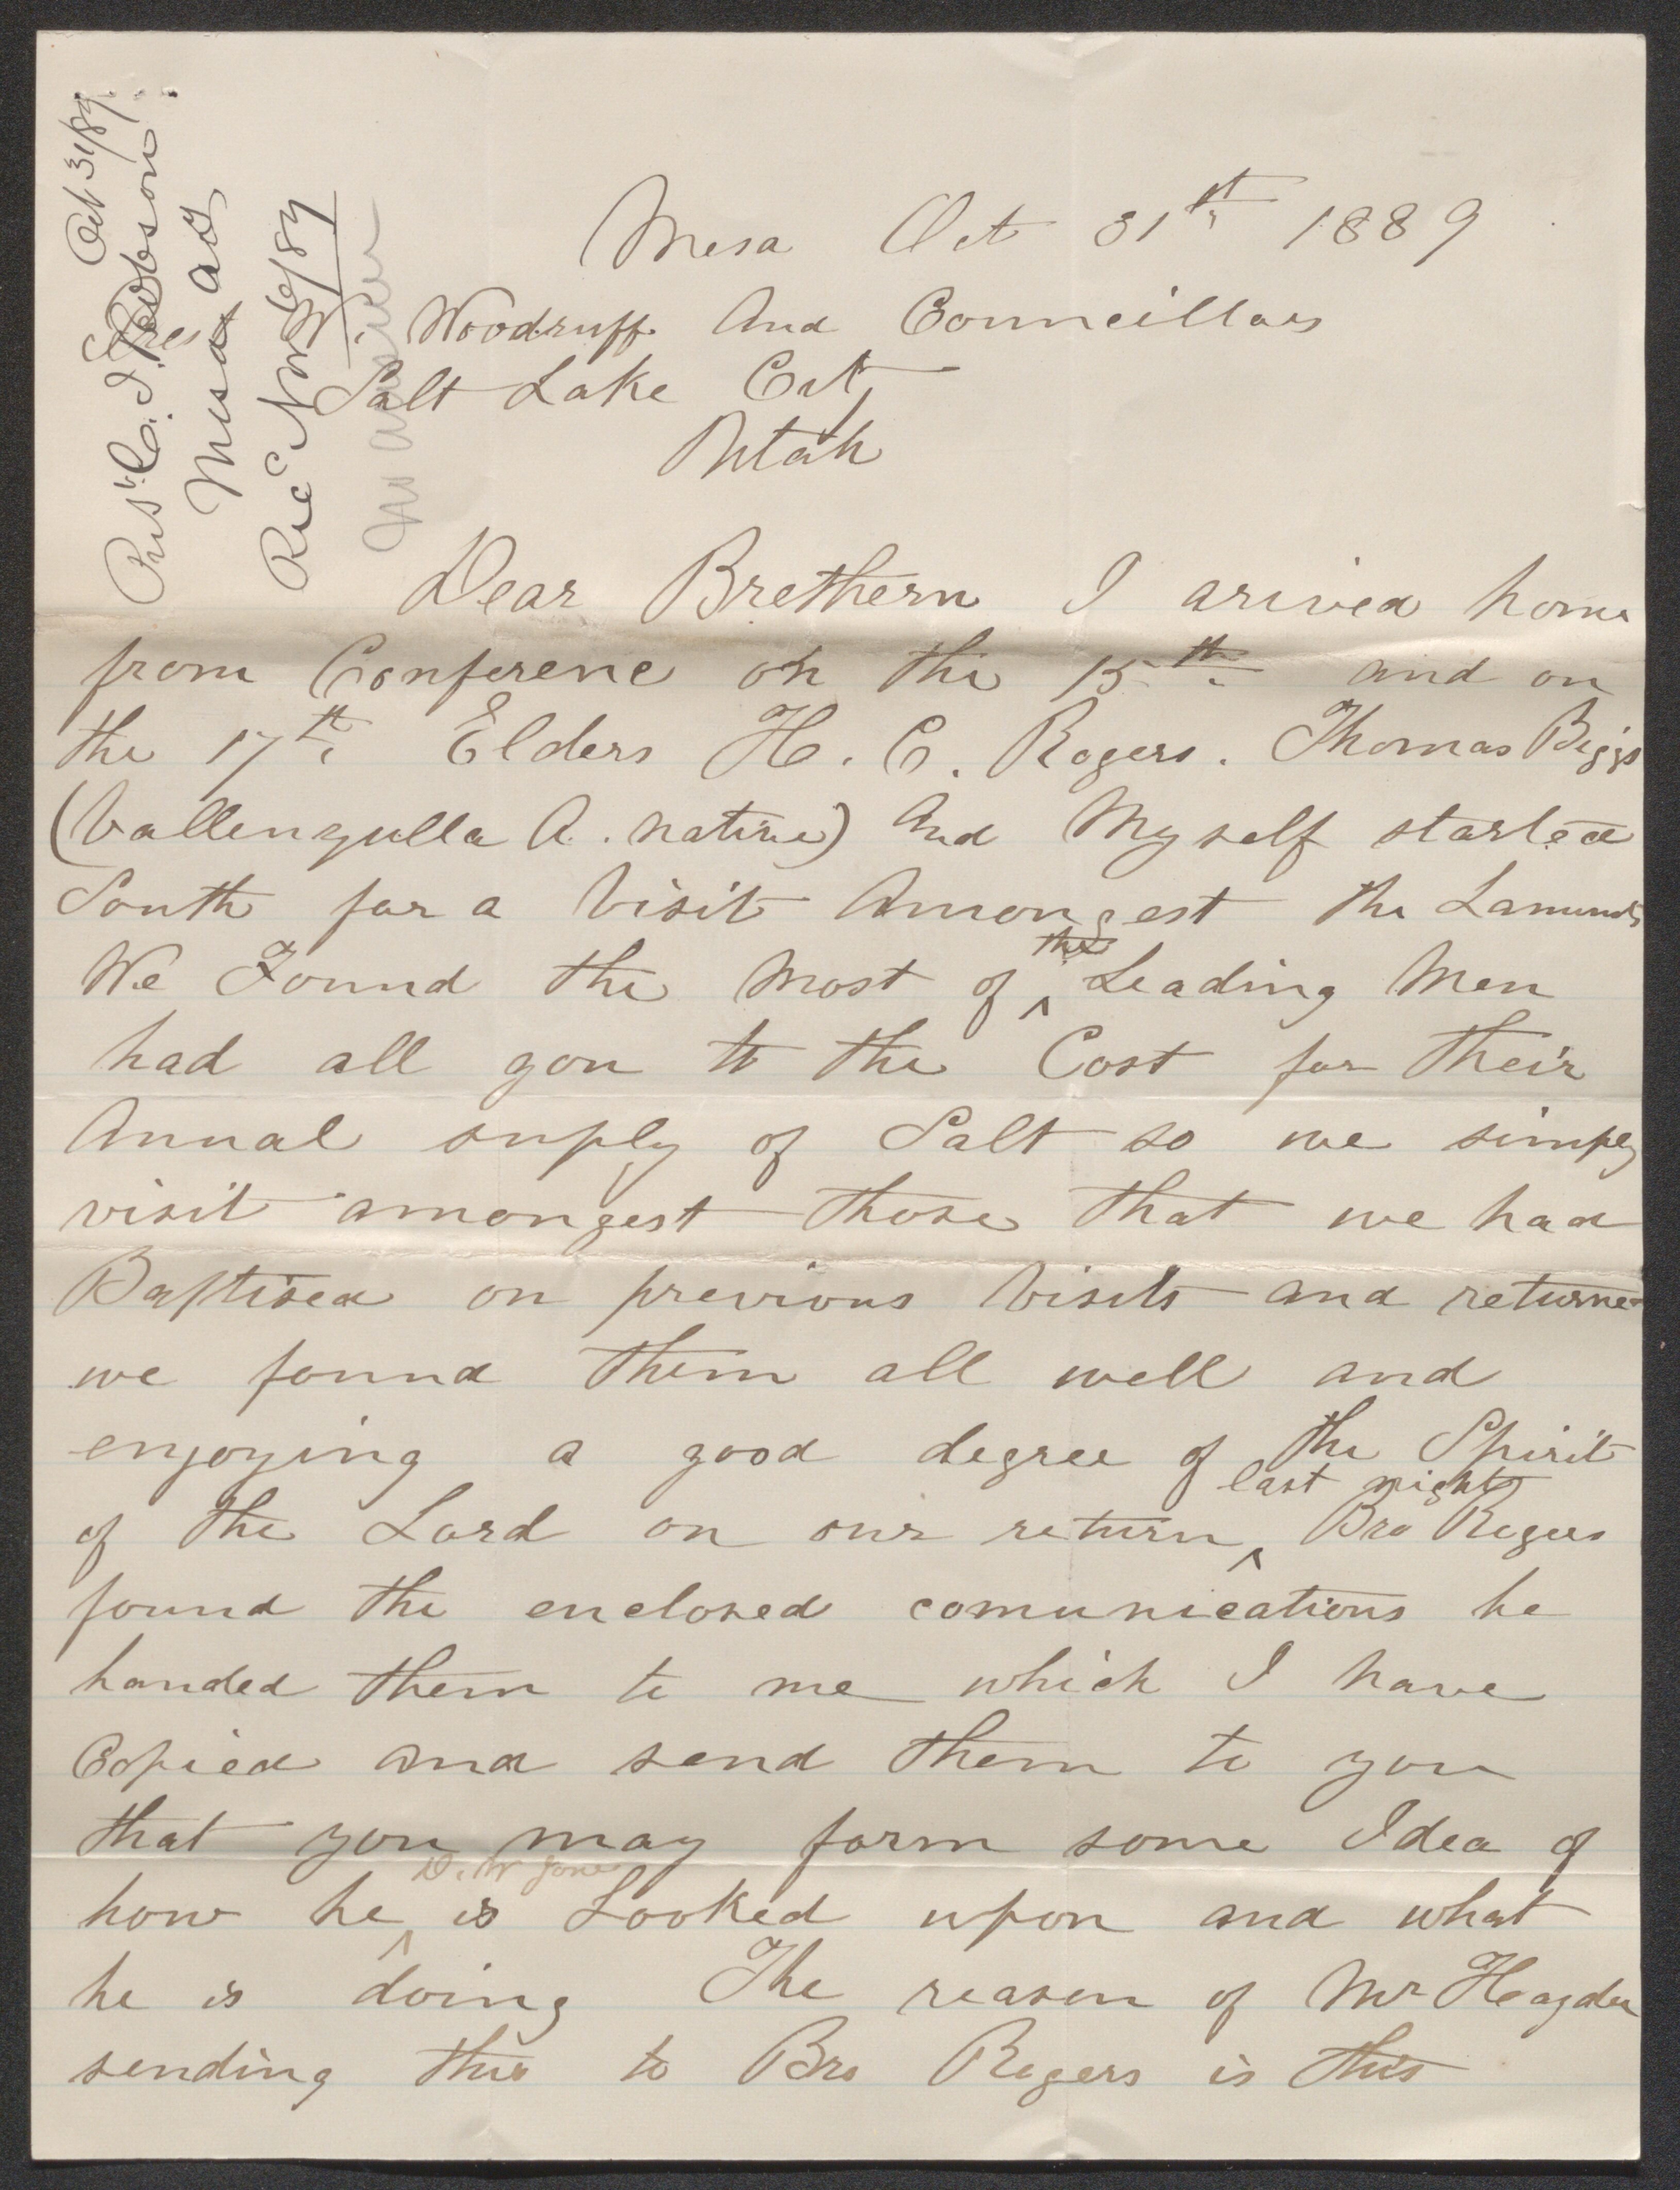 Oct 31/89
Prest. C. I. Robson
Mesa Ari
Recd Nov 6/89
no answer
Mesa Oct 31st 1889
Pres W. Woodruff And Councillors
Salt Lake City
Utah
Dear Brethern I arived home
from Conferenc on the 15th and on
the 17th Elders H. C. Rogers. Thomas Biggs
(Vallenzulla A. native) And My self started
South for a Visit Amongest the
We Found the Most of the Leading Men
had all gon to the Cost for their
Annual suply of Salt so we simply
visit amongest those that we had
Baptised on previous Visits and returned
we found them all well and
enjoying a good degree of the Spirit
of the Lord on our return last night Bro Rogers
found the enclosed comunications he
handed them to me which I have
Copied and send them to you
that you may form some Idea of
how he D. W Jones is Looked upon and what
he is doing The reason of Mr
sending this to Bro Rogers is this